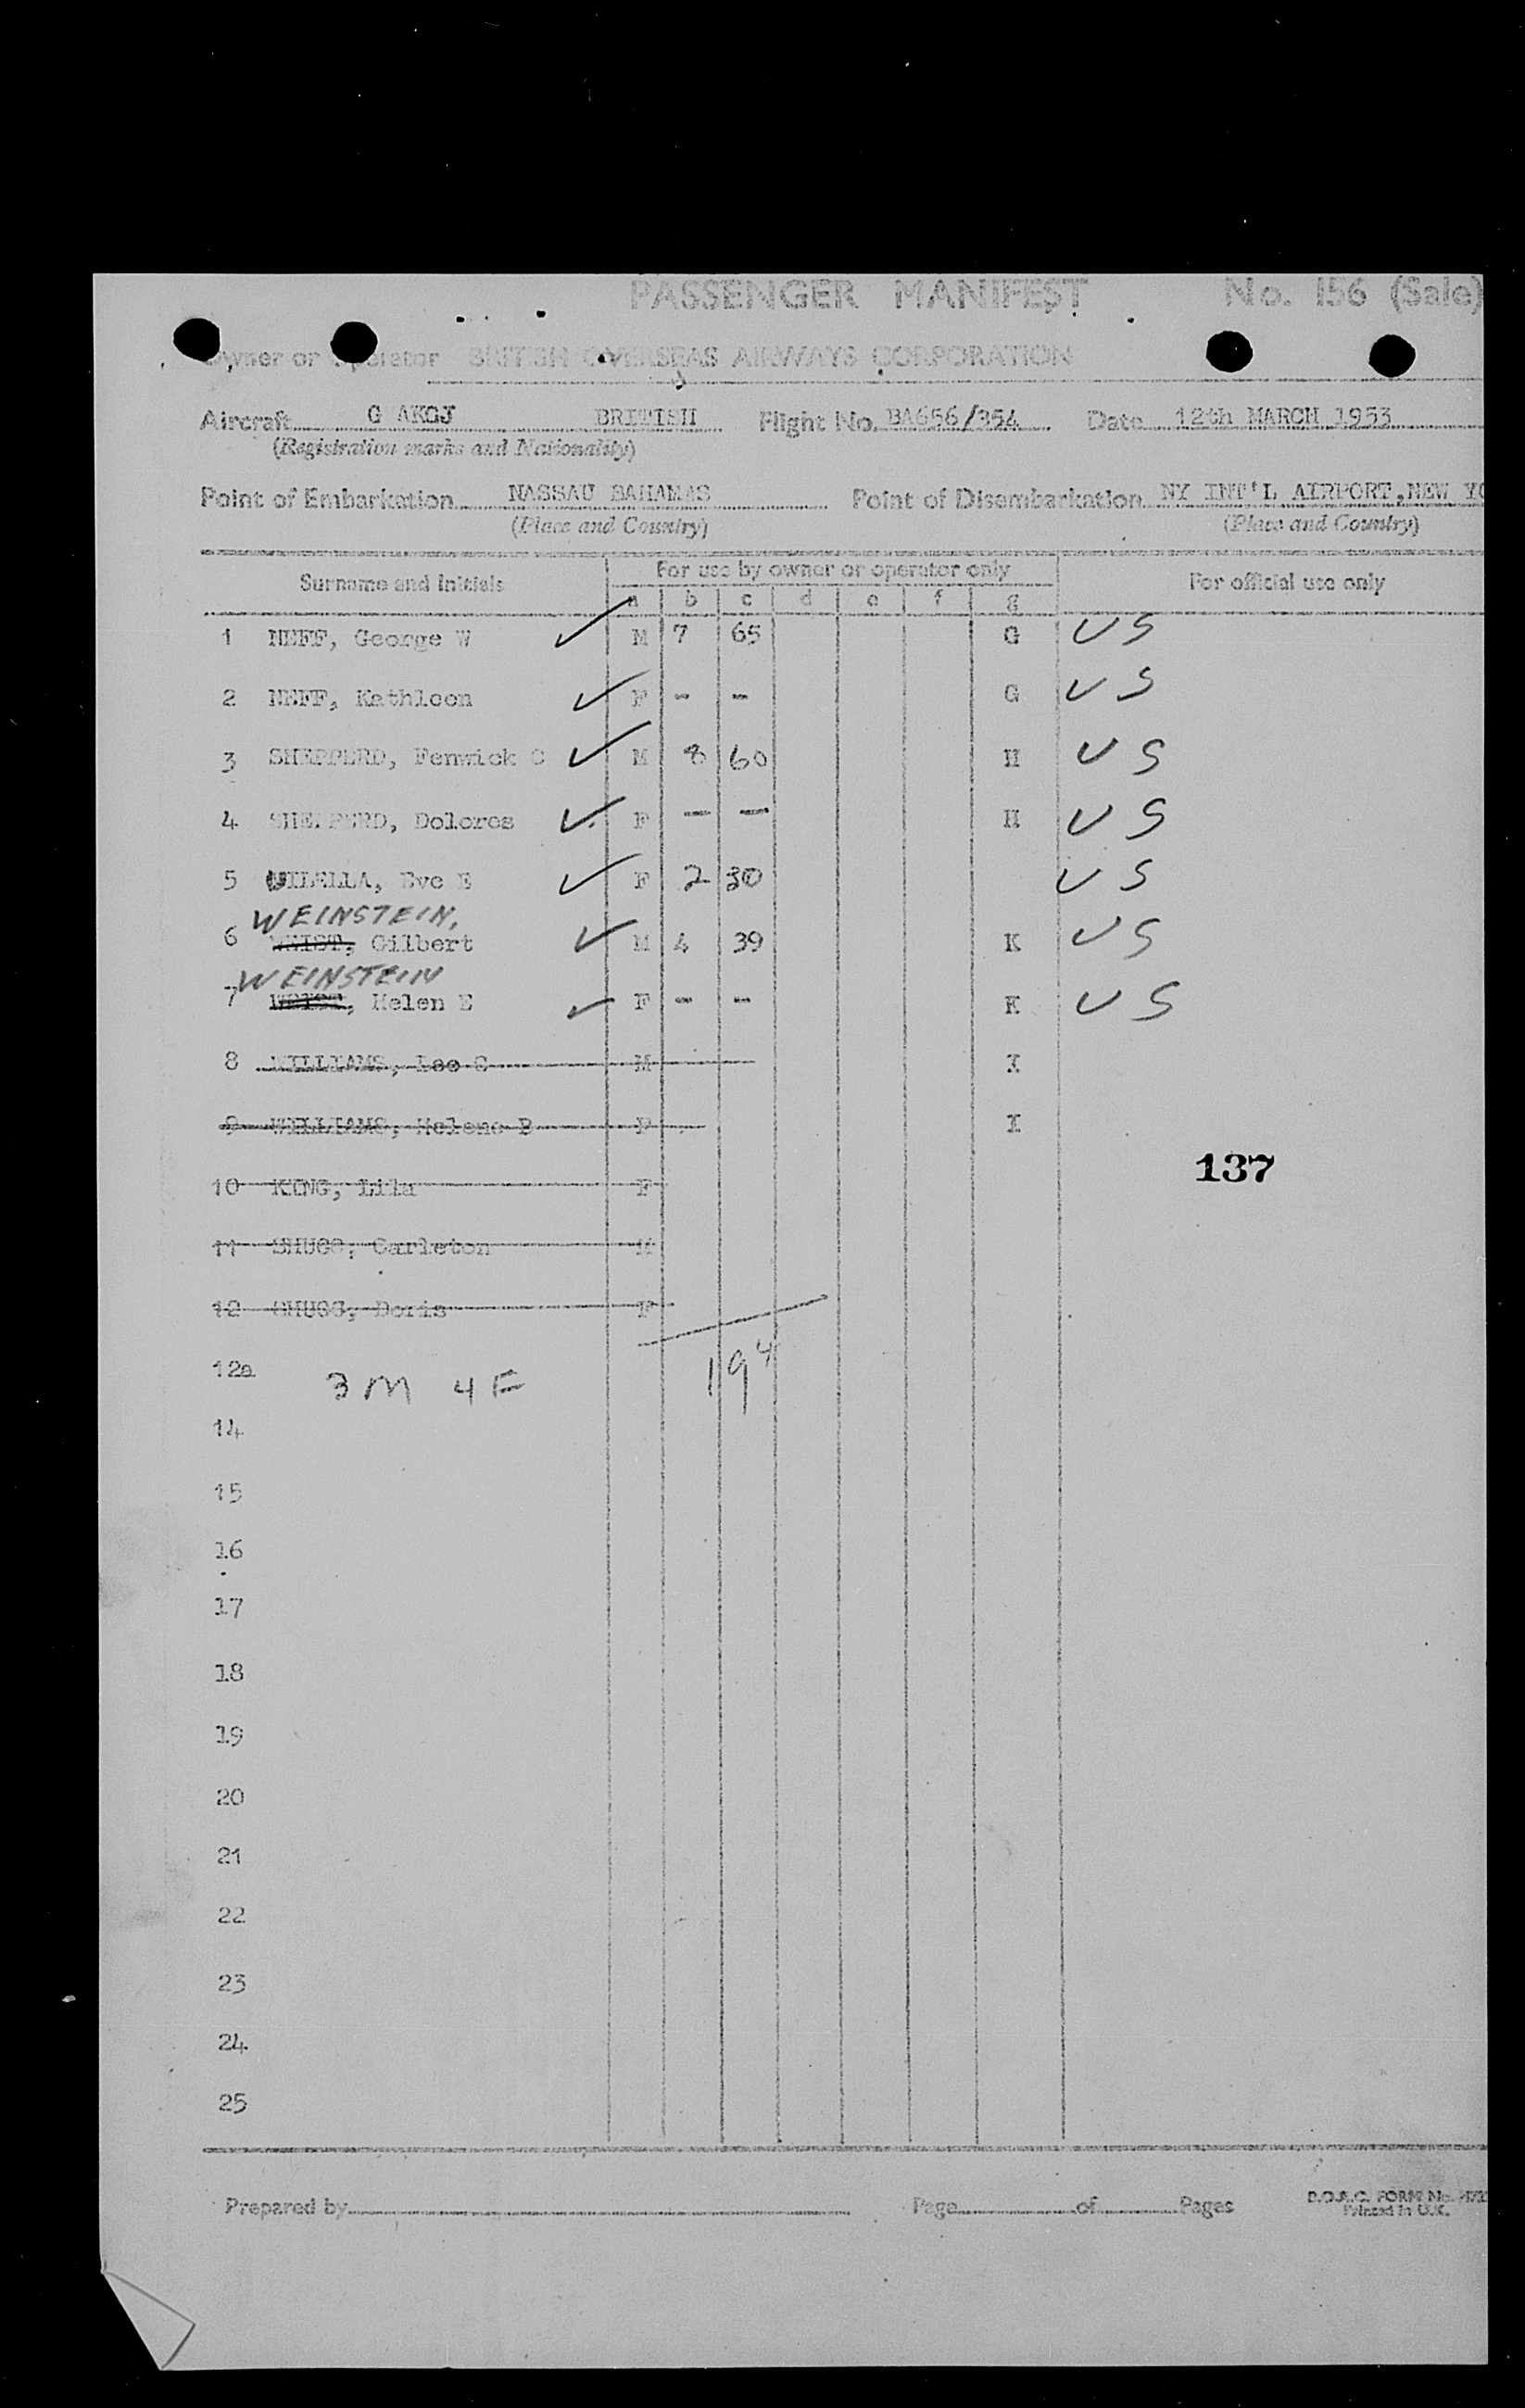 PASSENGER MANIFEST No. 156 (Sale)
Owner or Operator BRITISH OVERSEAS AIRWAYS CORPORATION
Aircraft G AKGJ BRITISH Flight No. BA656/354 Date 12th MARCH 1953
(Registration marks and Nationality)
Point of Embarkation NASSAU BAHAMAS Point of Disembarkation NY INT'L AIRPORT, NEW YO
(Place and Country) (Place and Country)
Surname and Initials For use by owner or operator only For official use only
a b c d e f g
1 NEFF, George W ✓ M 7 65 G US
2 NEFF, Kathleen ✓ F - - G US
3 SHEPPERD, Fenwick C ✓ M 8 60 H US
4 SHEPPERD, Dolores ✓ F - - H US
5 Eve E ✓ F 2 30 US
WEINSTEIN,
6 Gilbert ✓ M 4 39 K US
WEINSTEIN
7 Helen E ✓ F - - K US
8 WILLIAMS, Leo C M I
9 WILLIAMS, Helene B F I
137
10 KING, Lila F
11 SHUGG, Carleton M
12 SHUGG, Doris F
12a 3M 4F 194
14
15
16
17
18
19
20
21
22
23
24
25
Prepared by Page of Pages B.O.A.C. FORM No.
Printed in U.K.